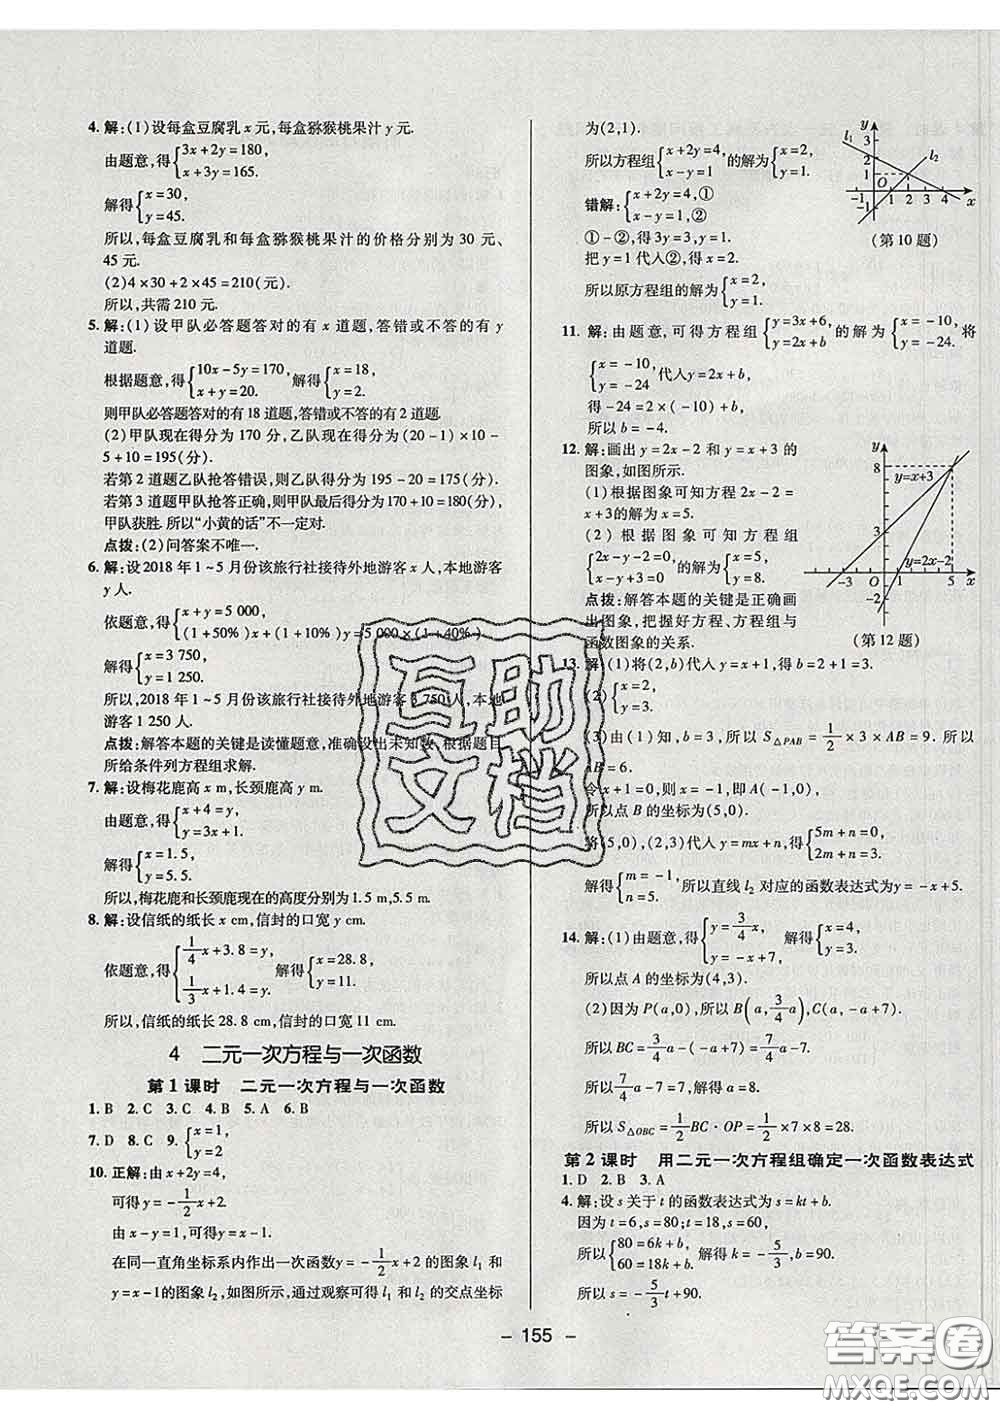 4. 解:(1)设每盒豆腐乳 x 元,每盒猕猴桃果汁 y 元.
由题意,得{3x+2y=180,
x+3y=165.
解得{x=30,
y=45.
所以,每盒豆腐乳和每盒猕猴桃果汁的价格分别为 30 元、
45 元.
(2)4×30+2×45=210(元).
所以,共需 210 元.
5. 解:(1)设甲队必答题答对的有 x 道题,答错或不答的有 y
道题.
根据题意,得{10x-5y=170,
x+y=20.
解得{x=18,
y=2.
则甲队必答题答对的有 18 道题,答错或不答的有 2 道题.
(2)甲队现在得分为 170 分,乙队现在得分为(20-1)×10-
5+10=195(分).
若第 2 道题乙队抢答错误,则乙队得分为 195-20=175(分).
若第 3 道题甲队抢答正确,则甲队得分为170+10=180(分),
甲队获胜.所以“小黄的话”不一定对.
点拨:(2)问答案不唯一.
6. 解:设2018 年 1~5 月份该旅行社接待外地游客 x 人,本地游客
y 人.
依题意,得{x+y=5 000,
(1+50%)x+(1+30%)y=5 000×(1+40%).
解得{x=3 750,
y=1 250.
所以,2018 年 1~5 月份该旅行社接待外地游客 3 750 人,本地
游客 1 250 人.
点拨:解答本题的关键是读懂题意,准确设出未知数,根据题目
所给条件列方程组求解.
7. 解:设梅花鹿高 x m,长颈鹿高 y m.
由题意,得{x+4=y,
y=3x+1.
解得{x=1.5,
y=5.5.
所以,梅花鹿和长颈鹿现在的高度分别为 1.5 m,5.5 m.
8. 解:设信纸的纸长 x cm,信封的口宽 y cm.
依题意,得{1/4x+3.8=y,
1/3x+1.4=y.
解得{x=28.8,
y=11.
所以,信纸的纸长 28.8 cm,信封的口宽 11 cm.
4 二元一次方程与一次函数
第 1 课时 二元一次方程与一次函数
1. B 2. C 3. C 4. B 5. A 6. B
7. D 8. C 9. {x=1,
y=2
10. 正解:由 x+2y=4,
可得 y=-1/2x+2.
由 x-y=1,可得 y=x-1.
在同一直角坐标系内作出一次函数 y=-1/2x+2 的图象 l1 和
y=x-1的图象 l2,如图所示,通过观察可得 l1 和 l2 的交点坐标
为(2,1).
所以方程组{x+2y=4,
x-y=1
的解为{x=2,
y=1.
错解:{x+2y=4,①
x-y=1,②
①-②,得 3y=3,y=1.
把 y=1 代入②,得 x=2.
所以原方程组的解为{x=2,
y=1.
y
l1
3
2
1
l2
O
-1
1 2 3 4
x
-1
(第 10 题)
11. 解:由题意,可得方程组{y=3x+6,
y=2x+b
的解为{x=-10,
y=-24.
将
{x=-10,
y=-24
代入 y=2x+b,
得-24=2×(-10)+b,
所以 b=-4.
12. 解:画出 y=2x-2 和 y=x+3 的
图象,如图所示.
(1)根据图象可知方程 2x-2=
x+3的解为 x=5.
(2)根据图象可知方程组
{2x-y-2=0,
x-y+3=0
的解为{x=5,
y=8.
点拨:解答本题的关键是正确画
出图象,把握好方程、方程组与
函数图象的关系.
y
8
y=x+3
3
y=2x-2
-3
O
1
5
x
-2
(第 12 题)
13. 解:(1)将(2,b)代入 y=x+1,得 b=2+1=3.
(2){x=2,
y=3.
(3)由(1)知,b=3,所以 S△PAB=1/2×3×AB=9.所以
AB=6.
令 x+1=0,则 x=-1,即 A(-1,0),
所以点 B 的坐标为(5,0).
将(5,0),(2,3)代入 y=mx+n,得{5m+n=0,
2m+n=3.
解得{m=-1,
n=5.
所以直线 l2 对应的函数表达式为 y=-x+5.
14. 解:(1)由题意,得{y=3/4x,
y=-x+7,
解得{x=4,
y=3.
所以点 A 的坐标为(4,3).
(2)因为 P(a,0),所以 B(a,3/4a),C(a,-a+7).
所以 BC=3/4a-(-a+7)=7/4a-7.
所以7/4a-7=7,解得 a=8.
所以 S△OBC=1/2BC·OP=1/2×7×8=28.
第 2 课时 用二元一次方程组确定一次函数表达式
1. D 2. B 3. A
4. 解:设 s 关于 t 的函数表达式为 s=kt+b.
因为 t=6,s=80;t=18,s=60,
所以{80=6k+b,
60=18k+b.
解得 k=-5/3,b=90.
所以 s=-5/3t+90.
- 155 -
互助
文档
答案圈
MXQE.COM